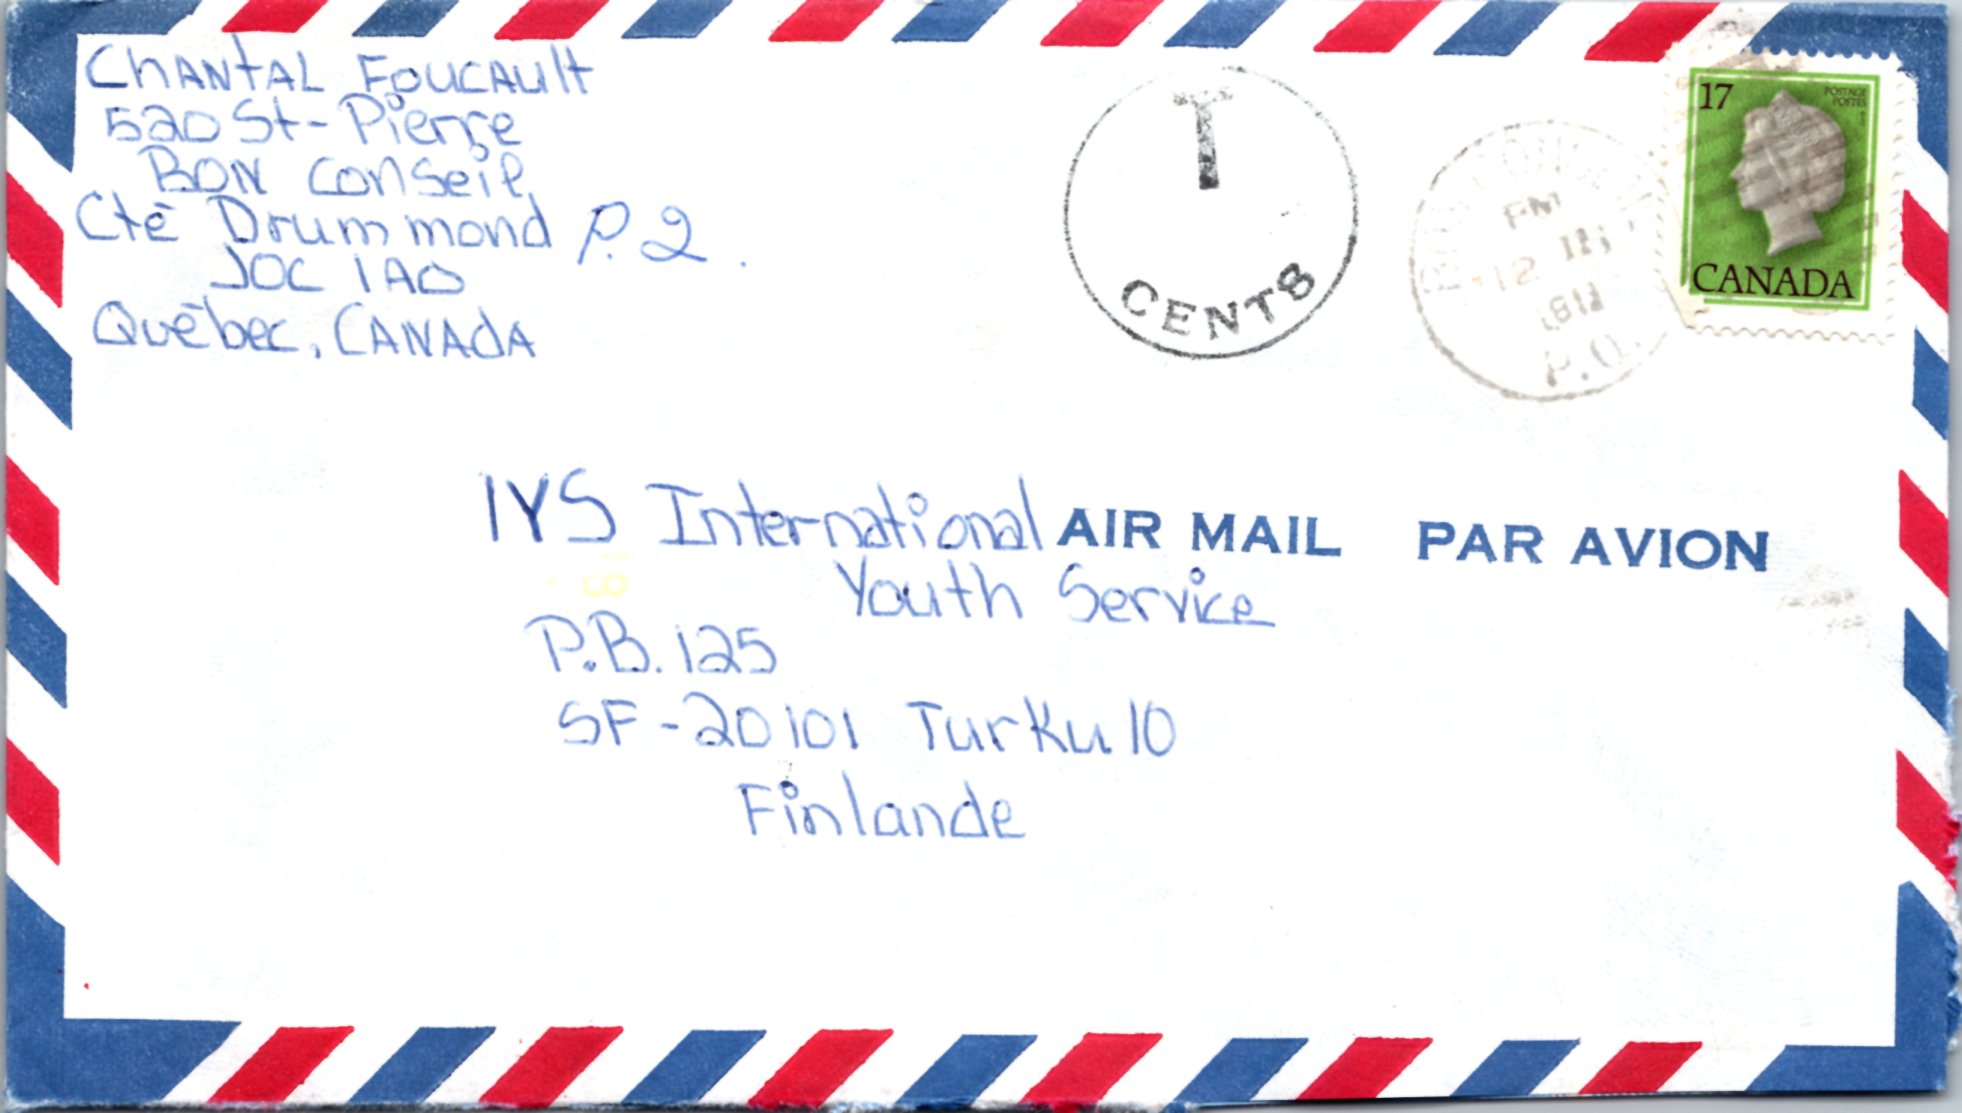 CHANTAL FOUCAULT
520 St-Pierre
BON CONSEIL
Cté Drummond P.2.
J0C 1A0
Québec, CANADA
T
CENTS
PM
12
P.O.
17
POSTAGE
POSTES
CANADA
IYS International
AIR MAIL PAR AVION
Youth Service
P.B. 125
SF-20101 Turku 10
Finlande